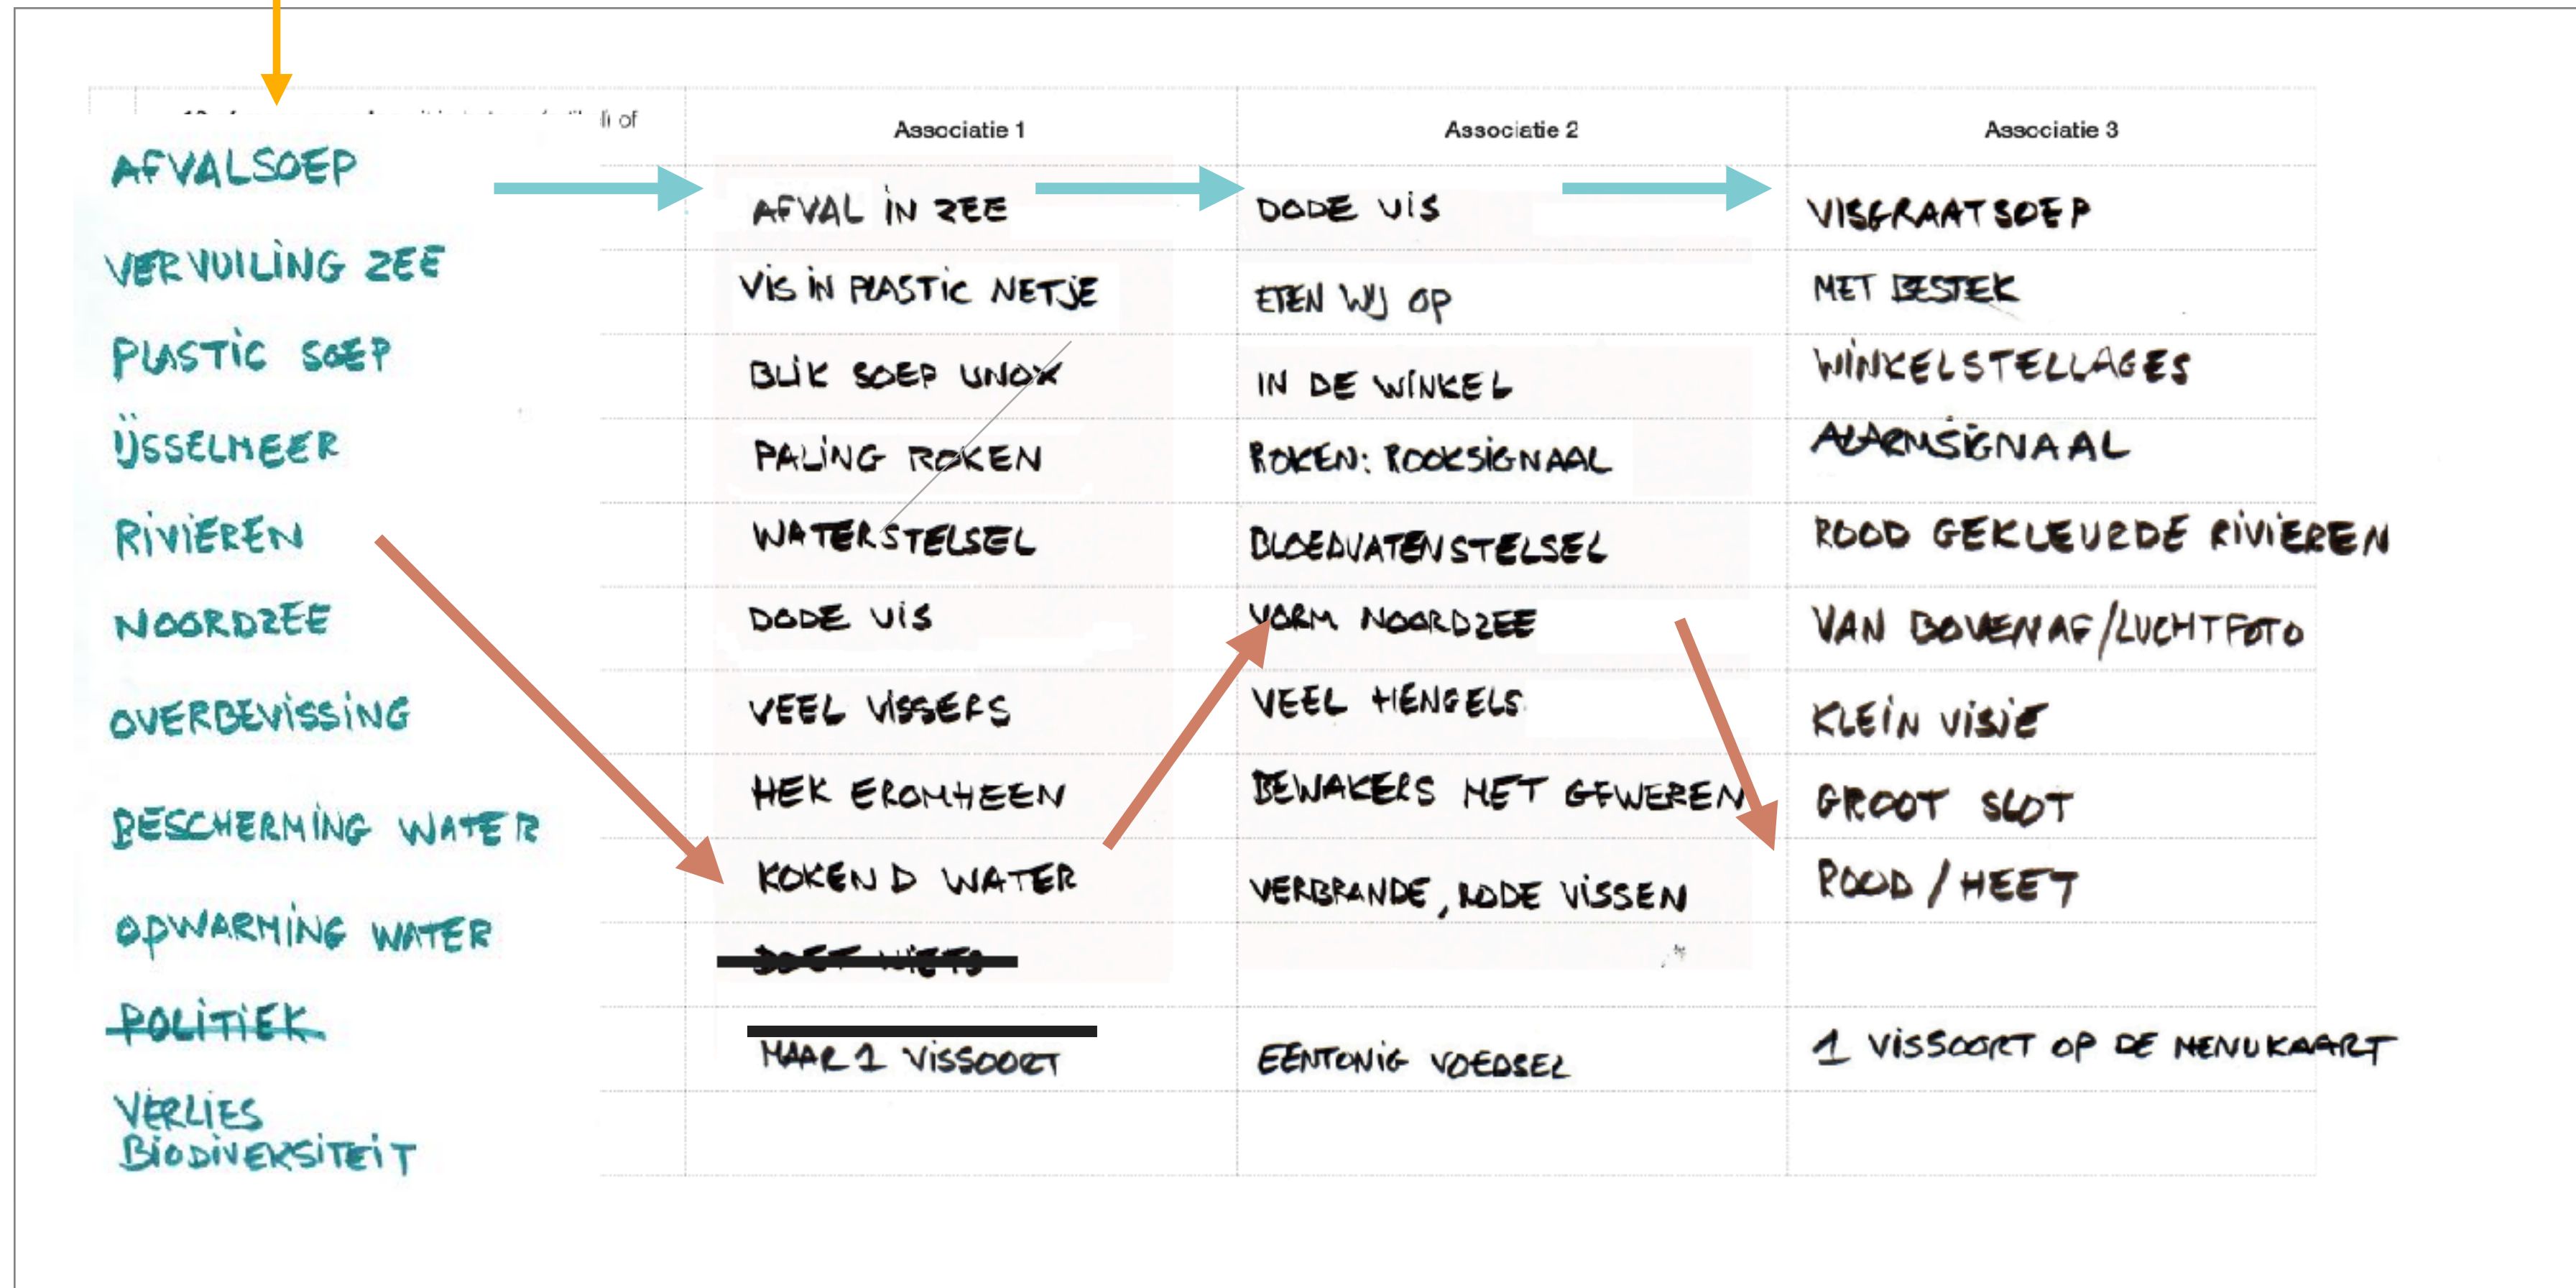 of
Associatie 1 Associatie 2 Associatie 3
AFVALSOEP
AFVAL IN ZEE DODE VIS VISGRAATSOEP
VERVUILING ZEE
VIS IN PLASTIC NETJE ETEN WIJ OP MET BESTEK
PLASTIC SOEP
BLIK SOEP UNOX IN DE WINKEL WINKELSTELLAGES
IJSSELMEER
PALING ROKEN ROKEN: ROOKSIGNAAL ALARMSIGNAAL
RIVIEREN
WATERSTELSEL BLOEDVATENSTELSEL ROOD GEKLEURDE RIVIEREN
NOORDZEE
DODE VIS VORM NOORDZEE VAN BOVENAF/LUCHTFOTO
OVERBEVISSING
VEEL VISSERS VEEL HENGELS KLEIN VISJE
BESCHERMING WATER
HEK EROMHEEN BEWAKERS MET GEWEREN GROOT SLOT
KOKEND WATER VERBRANDE, RODE VISSEN ROOD / HEET
OPWARMING WATER
DOET NIETS
POLITIEK
MAAR 1 VISSOORT EENTONIG VOEDSEL 1 VISSOORT OP DE MENUKAART
VERLIES
BIODIVERSITEIT